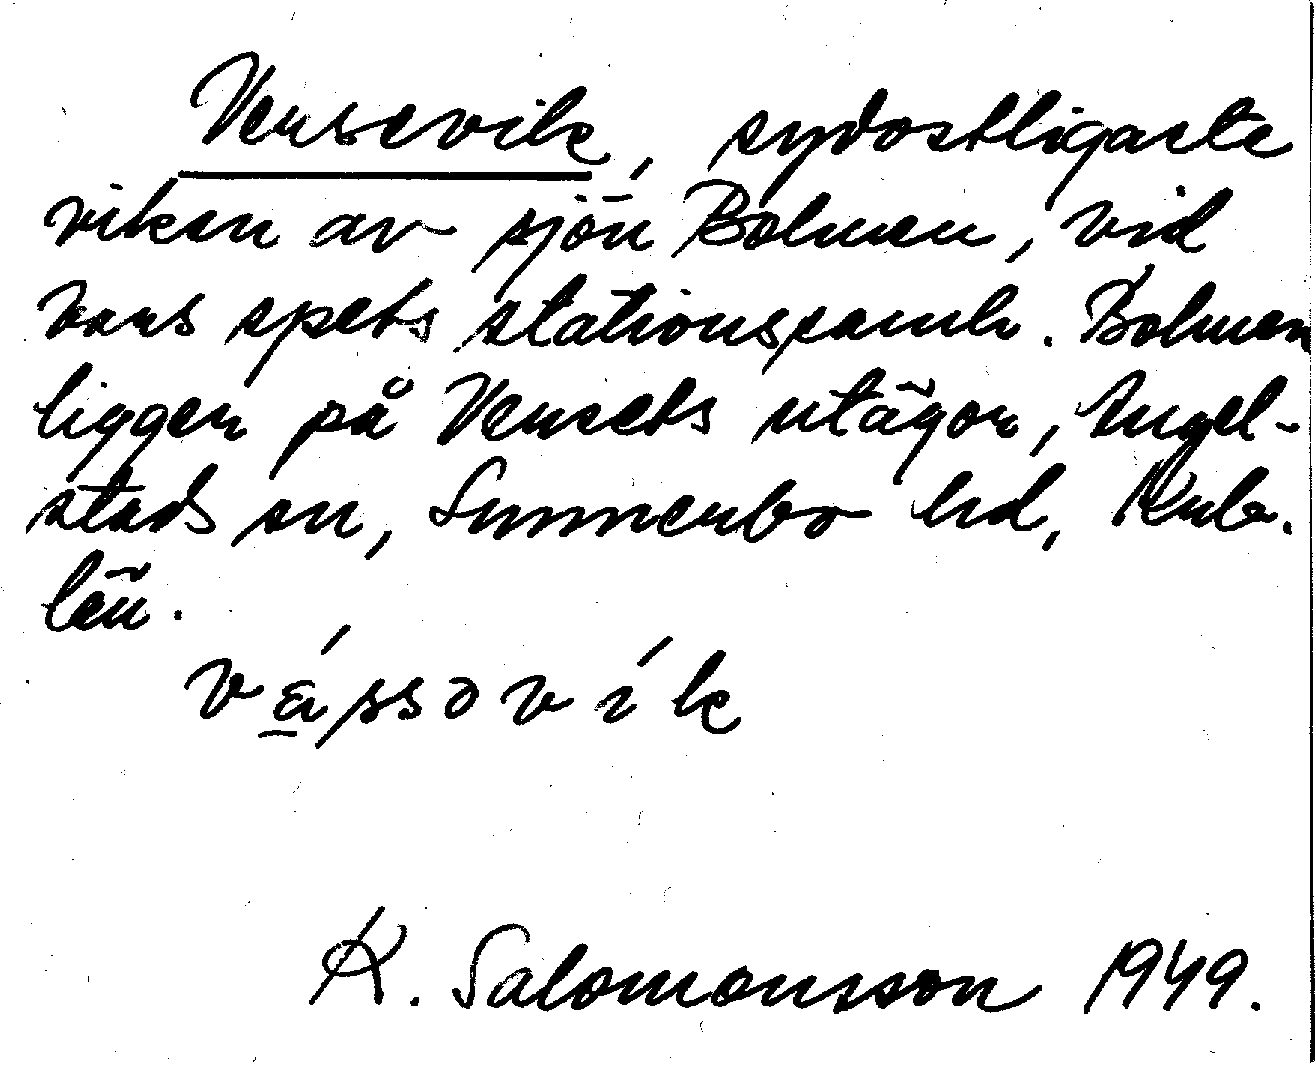 Versevik, sydostligaste
viken av sjön Bolmen, vid
vars spets stationssamh. Bolmen
ligger på Versets utägor, Angel-
stads sn, Sunnerbo hd, Krb.
län.
vássovík
K. Salomonsson 1949.